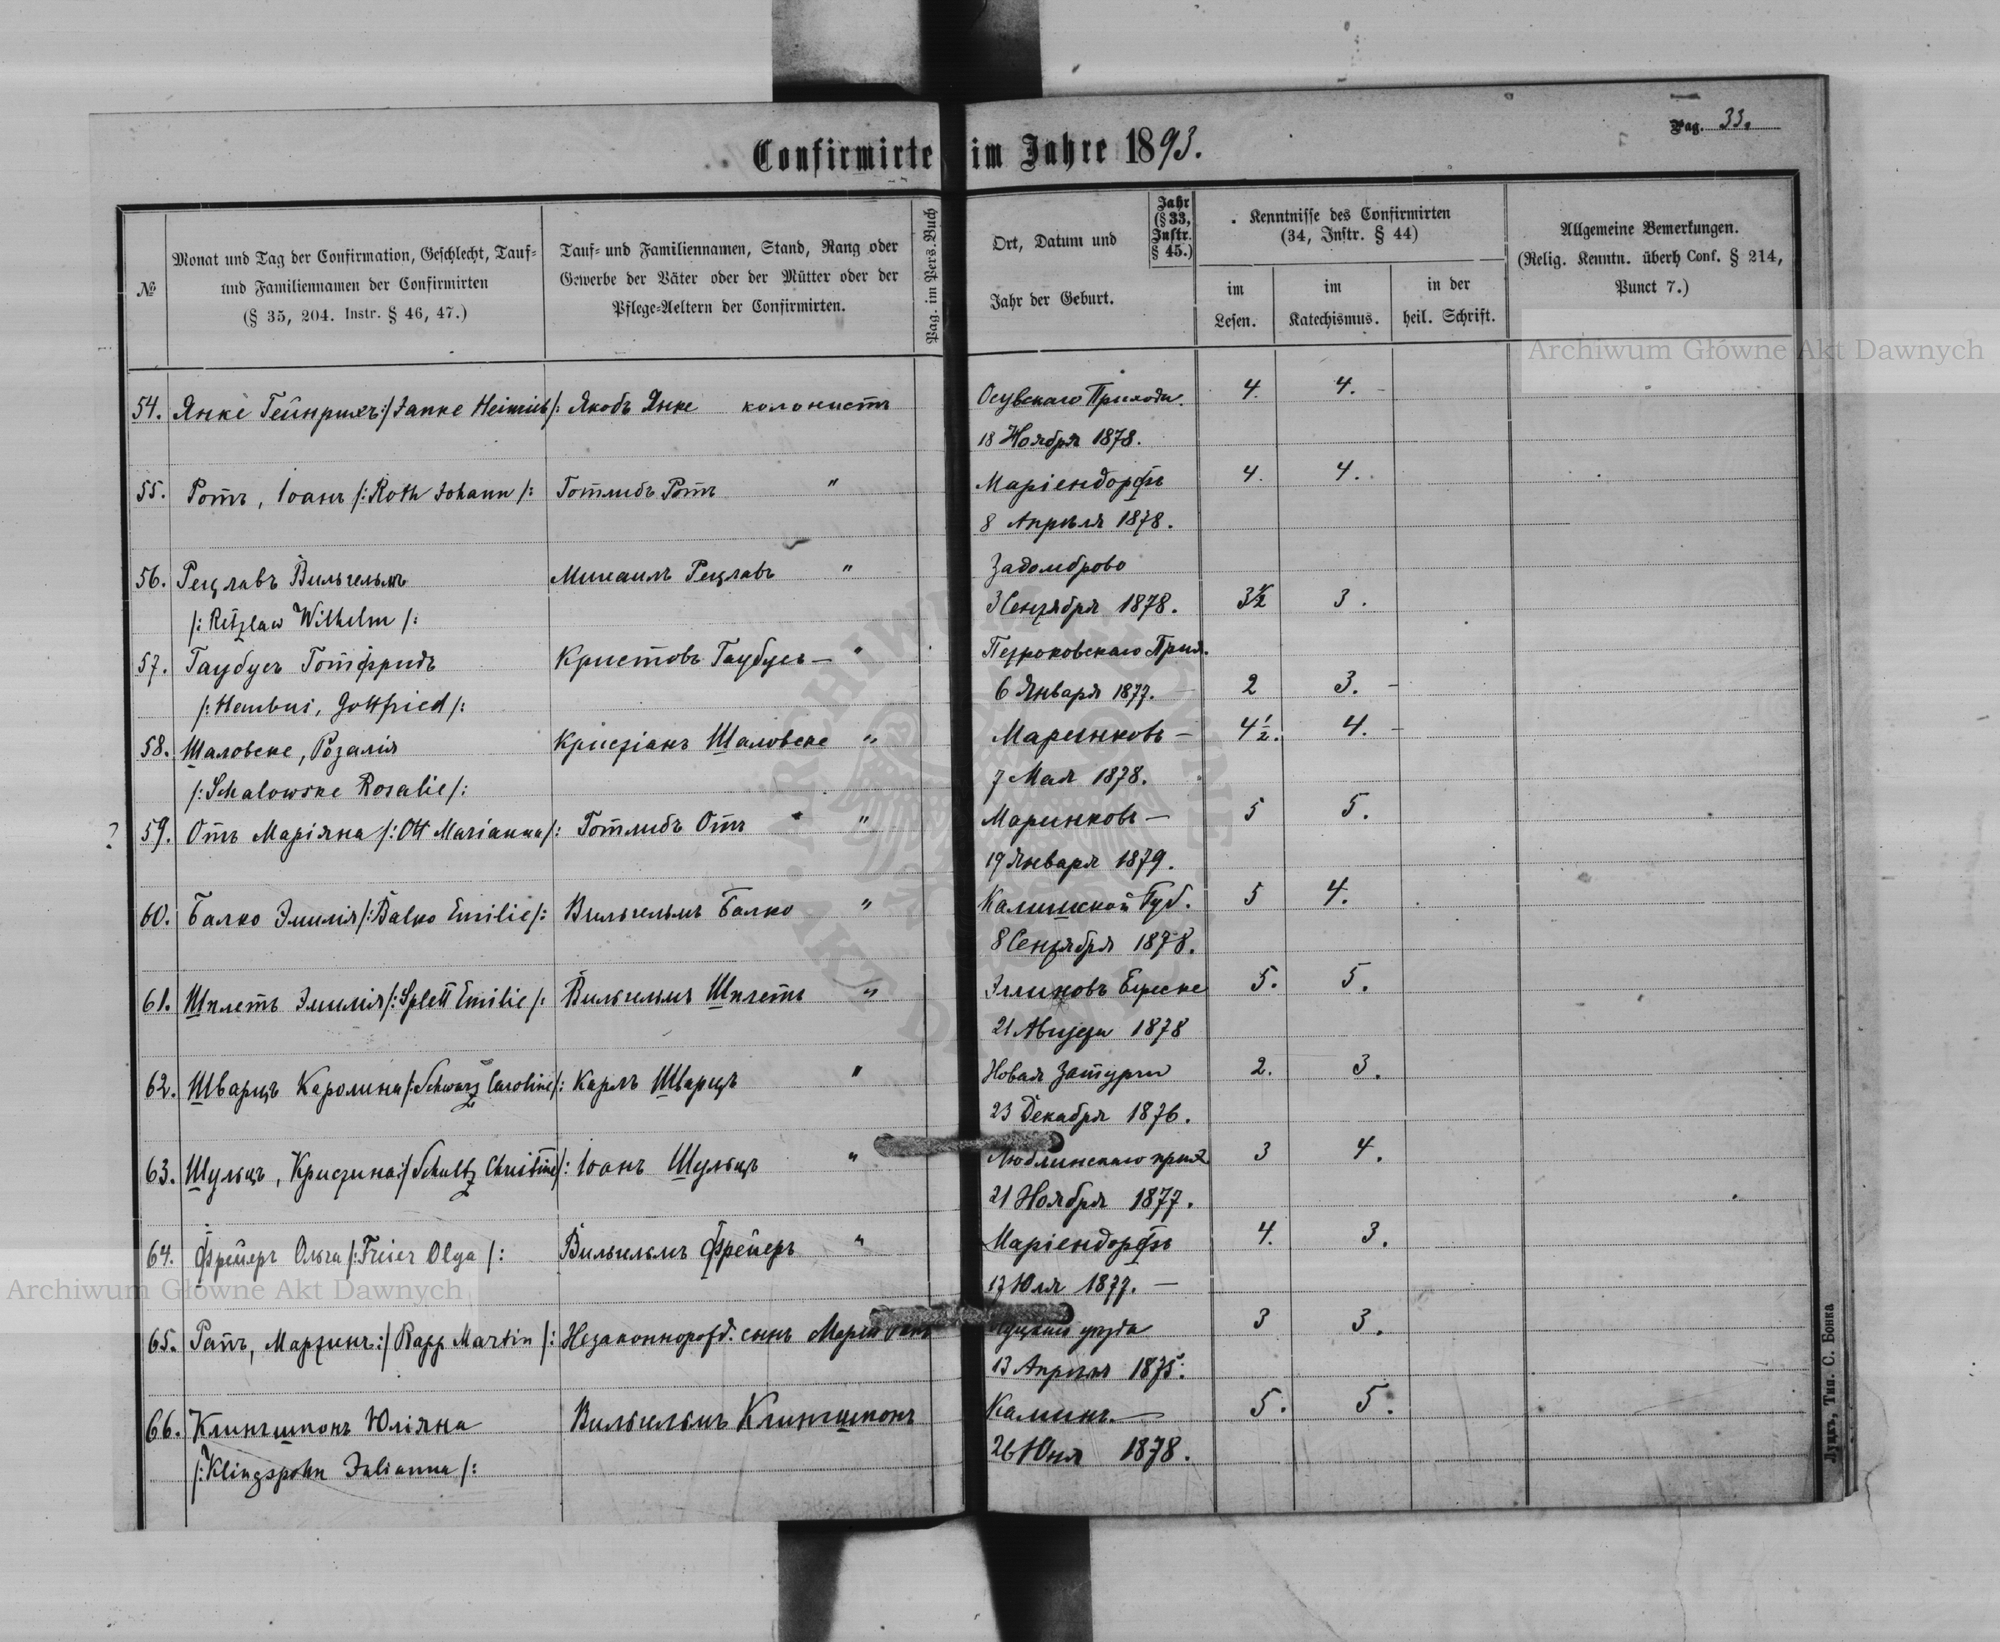 Pag. 33.
Confirmirte im Jahre 1893.
№
Monat und Tag der Confirmation, Geschlecht, Tauf-
und Familiennamen der Confirmirten
(§ 35, 204. Instr. § 46, 47.)
Tauf- und Familiennamen, Stand, Rang oder
Gewerbe der Väter oder der Mütter oder der
Pflege-Aeltern der Confirmirten.
Pag. im Pers. Buch
Ort, Datum und
Jahr der Geburt.
Jahr
(§ 33,
Instr.
§ 45.)
Kenntnisse des Confirmirten
(34, Instr. § 44)
im
Lesen.
im
Katechismus.
in der
heil. Schrift.
Allgemeine Bemerkungen.
(Relig. Kenntn. überh Conf. § 214,
Punct 7.)
Archiwum Główne Akt Dawnych
54. Янке Гейнрихъ /Janke Heinrich/: Якобъ Янке колонистъ Осувскаго Прихода. 4. 4.
18 Ноября 1878.
55. Ротъ, Іоанъ /: Roth Johann /: Готлибъ Ротъ " Маріендорфъ 4. 4.
8 Апрѣля 1878.
56. Рецлавъ Вильгельмъ Михаилъ Рецлавъ " Задомброво
/: Retzlaw Wilhelm /: 3 Сентября 1878. 3½ 3.
57. Гаубусъ Готфридъ Кристовъ Гаубусъ — "
/: Haubus, Gottfried /: 6 Января 1877. 2 3.
58. Шаловске, Розалія Кристіанъ Шаловске " Маринковъ — 4½. 4.
/: Schalowske Rosalie /: 7 Мая 1878.
? 59. Отъ Маріяна /: Ott Marianna /: Готлибъ Отъ " Маринковъ — 5 5.
19 Января 1879.
60. Балко Эмилія /: Balko Emilie /: Вильгельмъ Балко " Калишской Губ. 5 4.
8 Сентября 1878.
61. Шплетъ Эмилія /: Splett Emilie /: Вильгельмъ Шплетъ " 5. 5.
21 Августа 1878
62. Шварцъ Каролина /: Schwarz Caroline /: Карлъ Шварцъ " Новая Затурцы 2. 3.
23 Декабря 1876.
63. Шульцъ, Кристина /: Schultz Christine /: Іоанъ Шульцъ " Люблинскаго прих. 3 4.
21 Ноября 1877.
64. Фрейеръ Ольга /: Freier Olga /: Вильгельмъ Фрейеръ " Маріендорфъ 4. 3.
Archiwum Główne Akt Dawnych
17 Юля 1877. —
65. Рапъ, Мартинъ :/ Rapp Martin /: Незаконорожд. сынъ уѣзда 3 3.
13 Апрѣля 1875.
66. Клингшпонъ Юліяна Вильгельмъ Клингшпонъ Калишъ. — 5. 5.
/: Klingspohn Julianna /: 26 Юня 1878.
Луцкъ, Тип. С. Бонка
ARCHIWUM GŁÓWNE AKT DAWNYCH